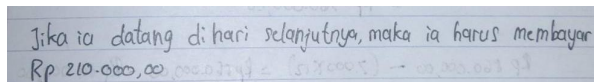 Jika ia datang di hari selanjutnya, maka ia harus membayar
Rp 210.000,00